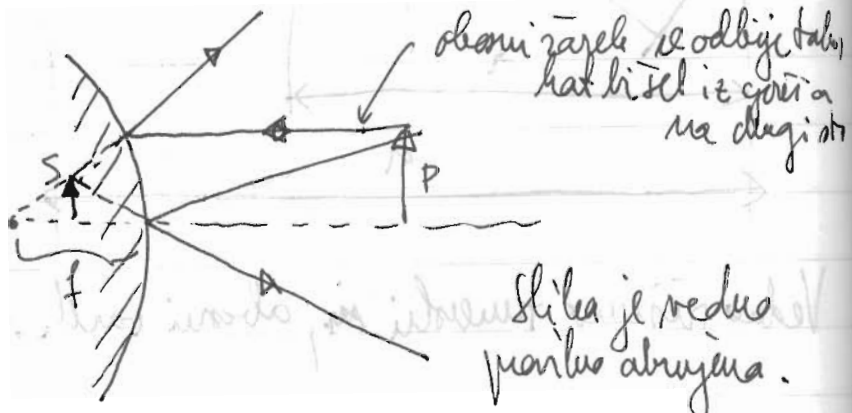 obosni žarek se odbije tako,
kot bi šel iz gorišča
na drugi str
S
P
f
Slika je vedno
pravilno obrnjena.